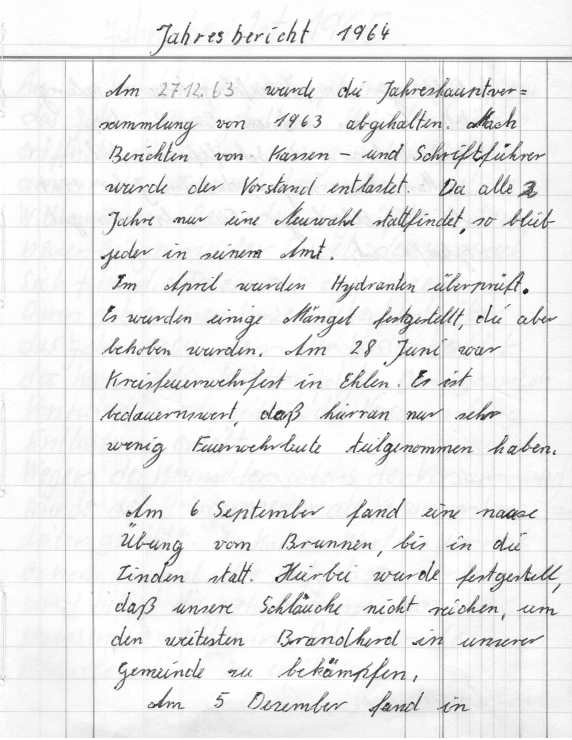 Jahresbericht 1964
Am 27.12.63 wurde die Jahreshauptver=
sammlung von 1963 abgehalten. Nach
Berichten von Kassen- und Schriftführer
wurde der Vorstand entlastet. Da alle 2
Jahre nur eine Neuwahl stattfindet, so bleib
jeder in seinem Amt.
Im April wurden Hydranten überprüft.
Es wurden einige Mängel festgestellt, die aber
behoben wurden. Am 28 Juni war
Kreisfeuerwehrfest in Ehlen. Es ist
bedauernswert, daß hierran nur sehr
wenig Feuerwehrleute teilgenommen haben.
Am 6 September fand eine nasse
Übung vom Brunnen, bis in die
Linden statt. Hierbei wurde festgestellt,
daß unsere Schläuche nicht reichen, um
den weitesten Brandherd in unserer
Gemeinde zu bekämpfen.
Am 5 Dezember fand in